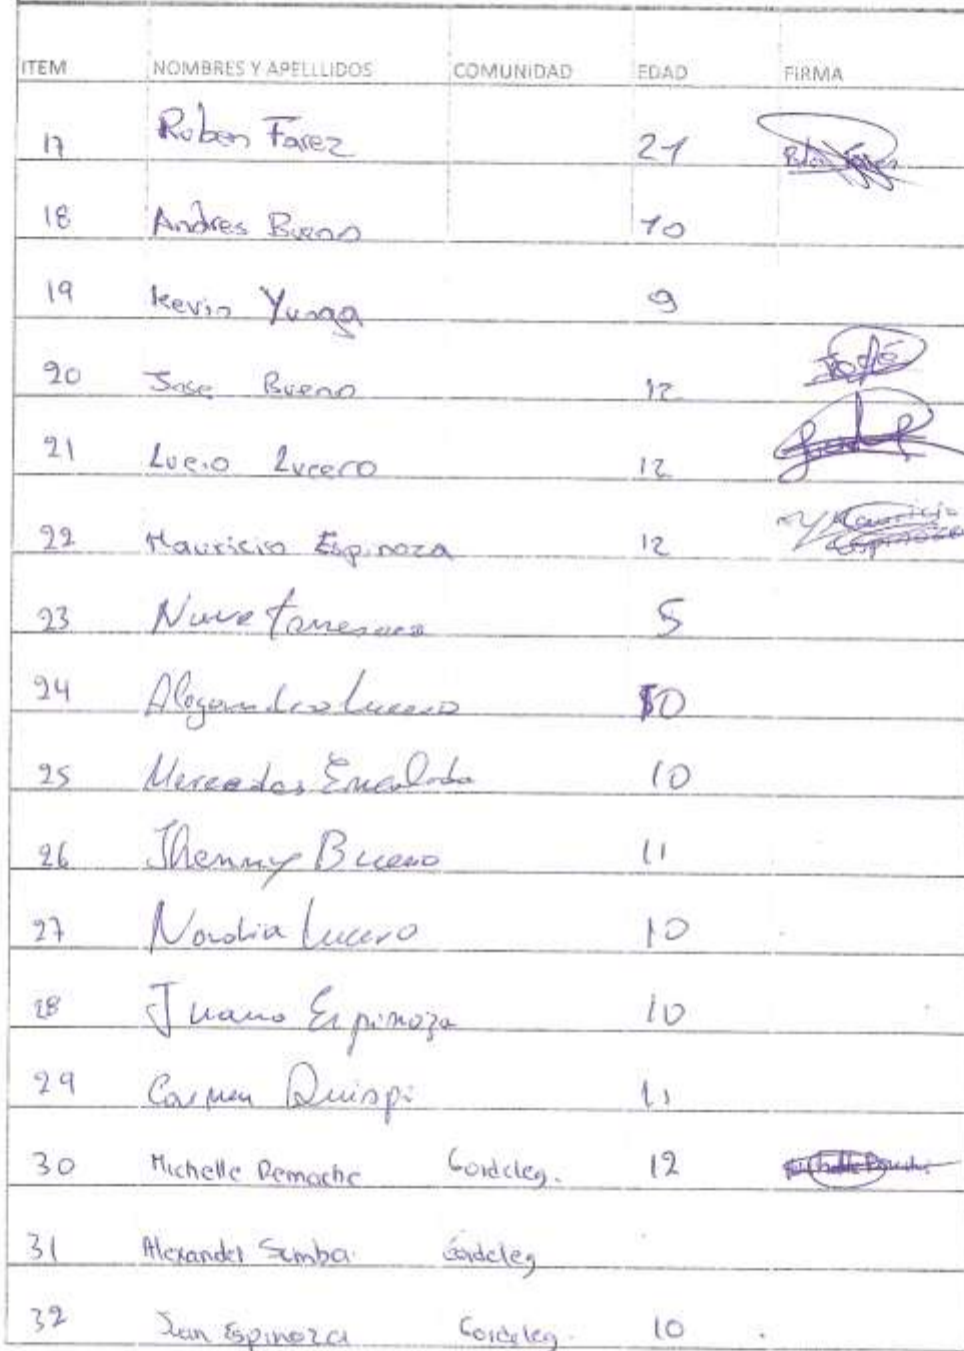 ITEM NOMBRES Y APELLLIDOS COMUNIDAD EDAD FIRMA
17 Ruben Farez 21
18 Andres Bueno 10
19 Kevin Yunga 9
20 Jose Bueno 12 José
21 Lucio Lucero 12
22 Mauricio Espinoza 12 Mauricio Espinoza
23 5
24 Lucero
25 Mercedes Encalada 10
26 Jhenny Bueno 11
27 Lucero 10
28 Juana Espinoza 10
29 Carmen Quispi 11
30 Michelle Pemache Gordeleg. 12
31 Alexander Sumba Gordeleg
32 Juan Espinoza Gordeleg. 10